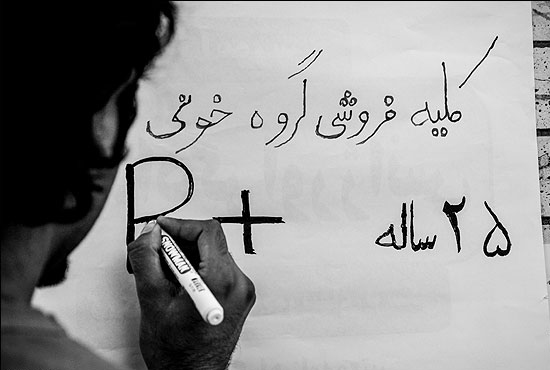 کلیه فروشی گروه خونی
۲۵ ساله P+
SNOWMAN